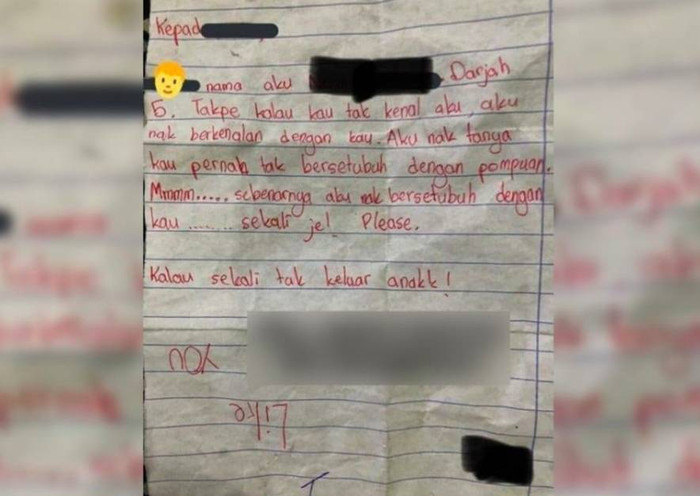 Kepad
nama aku Darjah
5. Takpe kalau kau tak kenal aku, aku
nak berkenalan dengan kau. Aku nak tanya
kau pernah tak bersetubuh dengan pompuan.
Mmmm..... sebenarnya aku nak bersetubuh dengan
kau ........ sekali je! Please.
Kalau sekali tak keluar anakk!